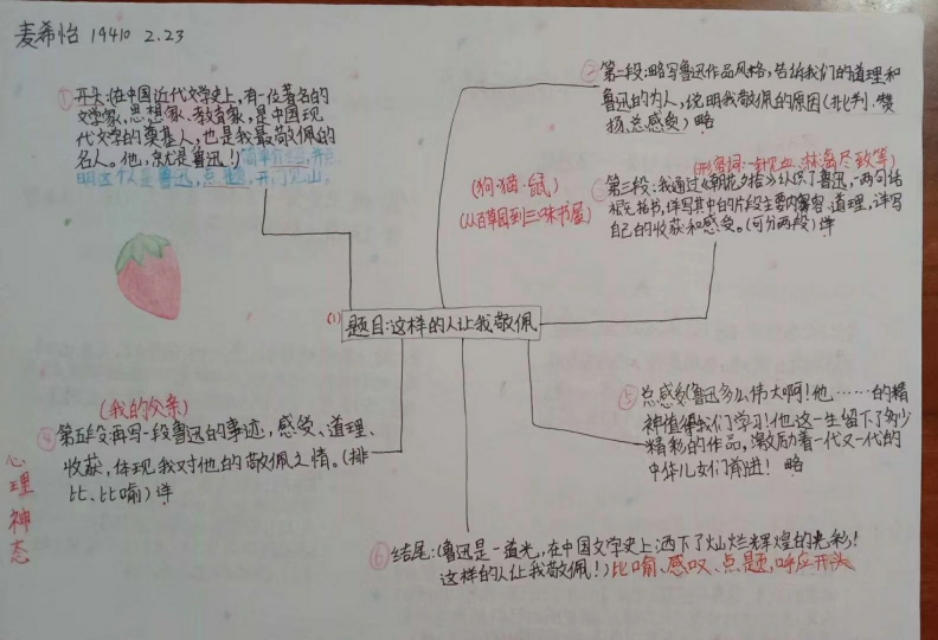 麦希怡 19410 2.23
①开头:(在中国近代文学史上,有一位著名的
文学家、思想家、教育家,是中国现
代文学的奠基人,也是我最敬佩的
名人。他,就是鲁迅!)简单介绍,并点
明这个人是鲁迅,点题,开门见山,
②第二段:略写鲁迅作品风格,告诉我们的道理和
鲁迅的为人,说明我敬佩的原因(批判、赞
扬、总感受)略
(形容词:一针见血、淋漓尽致等)
(狗·猫·鼠)
(从百草园到三味书屋)
③第三段:我通过《朝花夕拾》认识了鲁迅,两句话
概括书,详写其中的片段主要内容、道理,详写
自己的收获和感受。(可分两段)详
(1)题目:这样的人让我敬佩
(我的父亲)
④第五段再写一段鲁迅的事迹,感受、道理、
收获,体现我对他的敬佩之情。(排
比、比喻)详
心理神态
⑤总感受(鲁迅多么伟大啊!他……的精
神值得我们学习!他这一生留下了多少
精彩的作品,激励着一代又一代的
中华儿女们奋进! 略
⑥结尾:(鲁迅是一道光,在中国文学史上洒下了灿烂辉煌的光彩!
这样的人让我敬佩!)比喻、感叹、点题,呼应开头